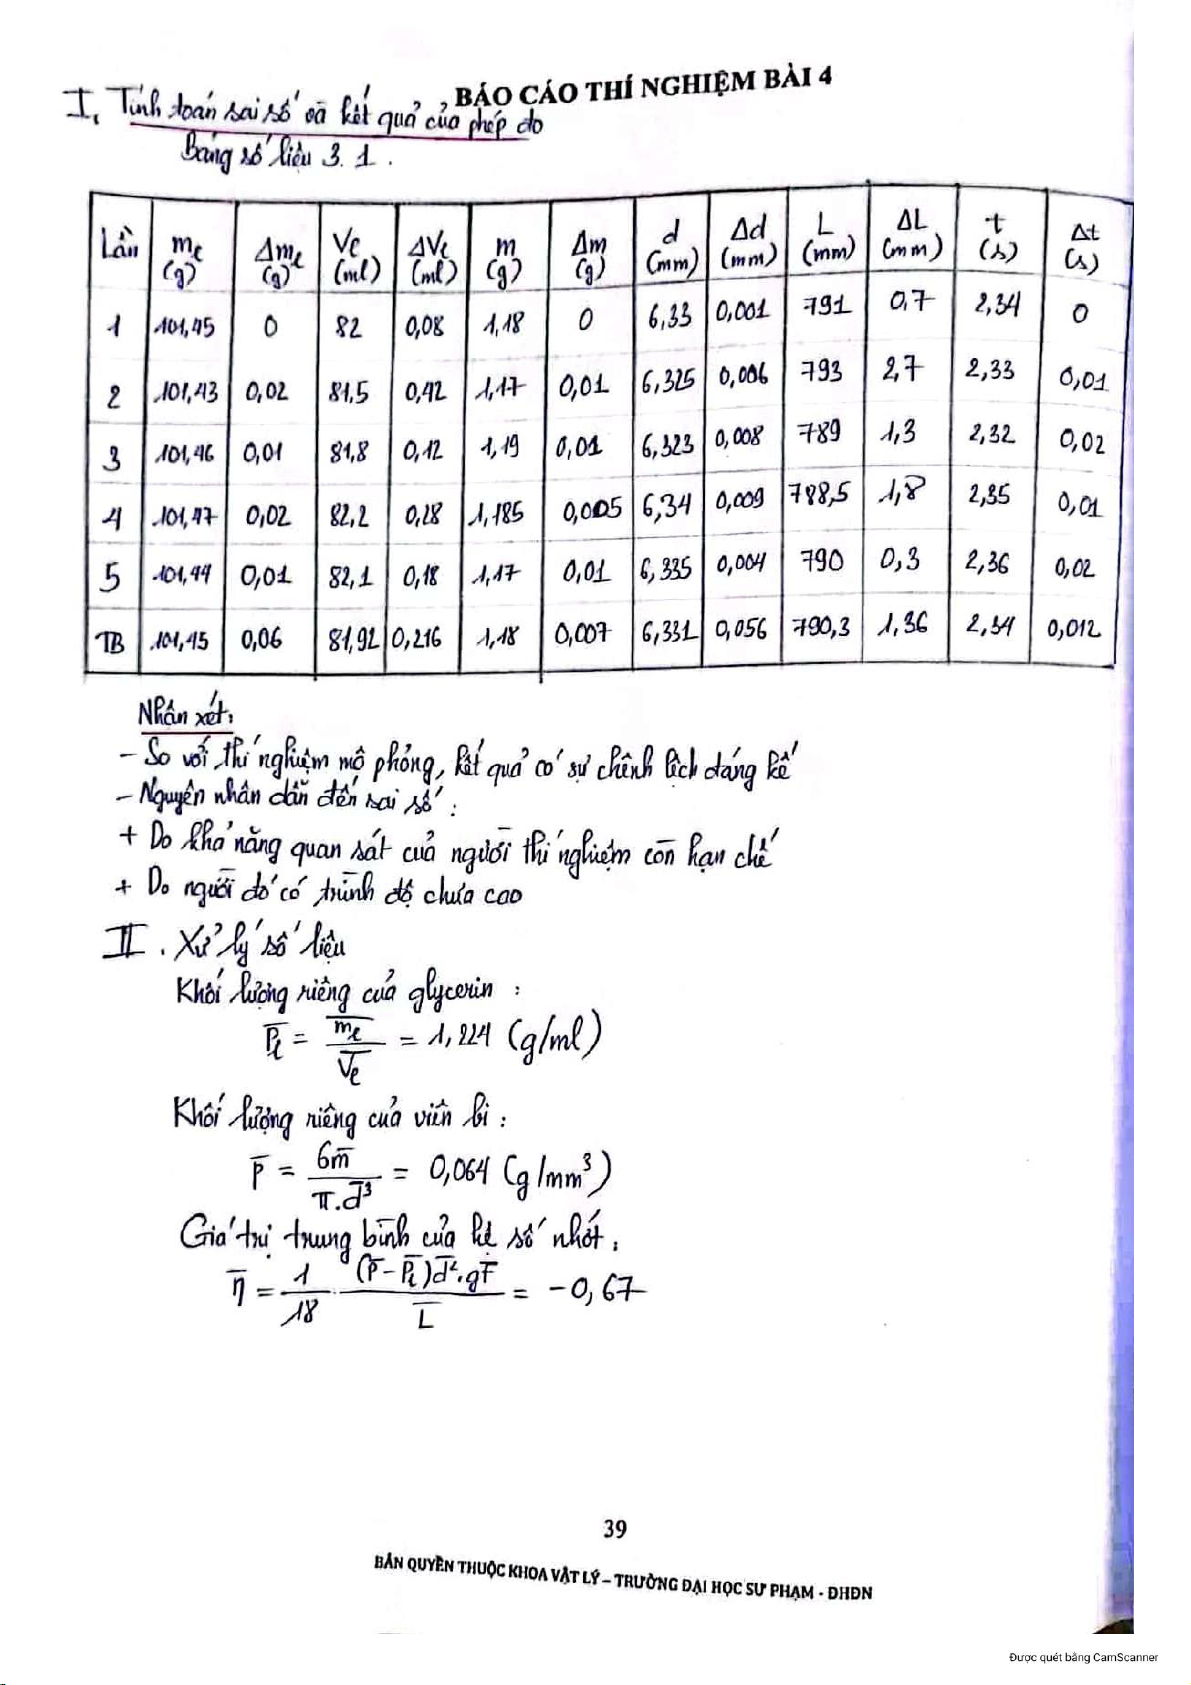 BÁO CÁO THÍ NGHIỆM BÀI 4
I, Tính toán sai số và kết quả của phép đo
Bảng số liệu 3.1.
Lần mℓ (g) Δmℓ (g) Vℓ (ml) ΔVℓ (ml) m (g) Δm (g) d (mm) Δd (mm) L (mm) ΔL (mm) t (s) Δt (s)
1 101,45 0 82 0,08 1,18 0 6,33 0,001 791 0,7 2,34 0
2 101,43 0,02 81,5 0,42 1,17 0,01 6,325 0,006 793 2,7 2,33 0,01
3 101,46 0,01 81,8 0,12 1,19 0,01 6,323 0,008 789 1,3 2,32 0,02
4 101,47 0,02 82,2 0,28 1,185 0,005 6,34 0,009 788,5 1,8 2,35 0,01
5 101,44 0,01 82,1 0,18 1,17 0,01 6,335 0,004 790 0,3 2,36 0,02
TB 101,45 0,06 81,92 0,216 1,18 0,007 6,331 0,056 790,3 1,36 2,34 0,012
Nhận xét:
- So với thí nghiệm mô phỏng, kết quả có sự chênh lệch đáng kể
- Nguyên nhân dẫn đến sai số:
+ Do khả năng quan sát của người thí nghiệm còn hạn chế
+ Do người đo có trình độ chưa cao
II. Xử lý số liệu
Khối lượng riêng của glycerin :
ρ̄ℓ = m̄ℓ / V̄ℓ = 1,224 (g/ml)
Khối lượng riêng của viên bi :
ρ̄ = 6m̄ / π.d̄³ = 0,064 (g/mm³)
Giá trị trung bình của hệ số nhớt:
η̄ = 1/18 . (ρ̄ - ρ̄ℓ)d̄².gt̄ / L̄ = -0,67
39
BẢN QUYỀN THUỘC KHOA VẬT LÝ – TRƯỜNG ĐẠI HỌC SƯ PHẠM - ĐHĐN
Được quét bằng CamScanner